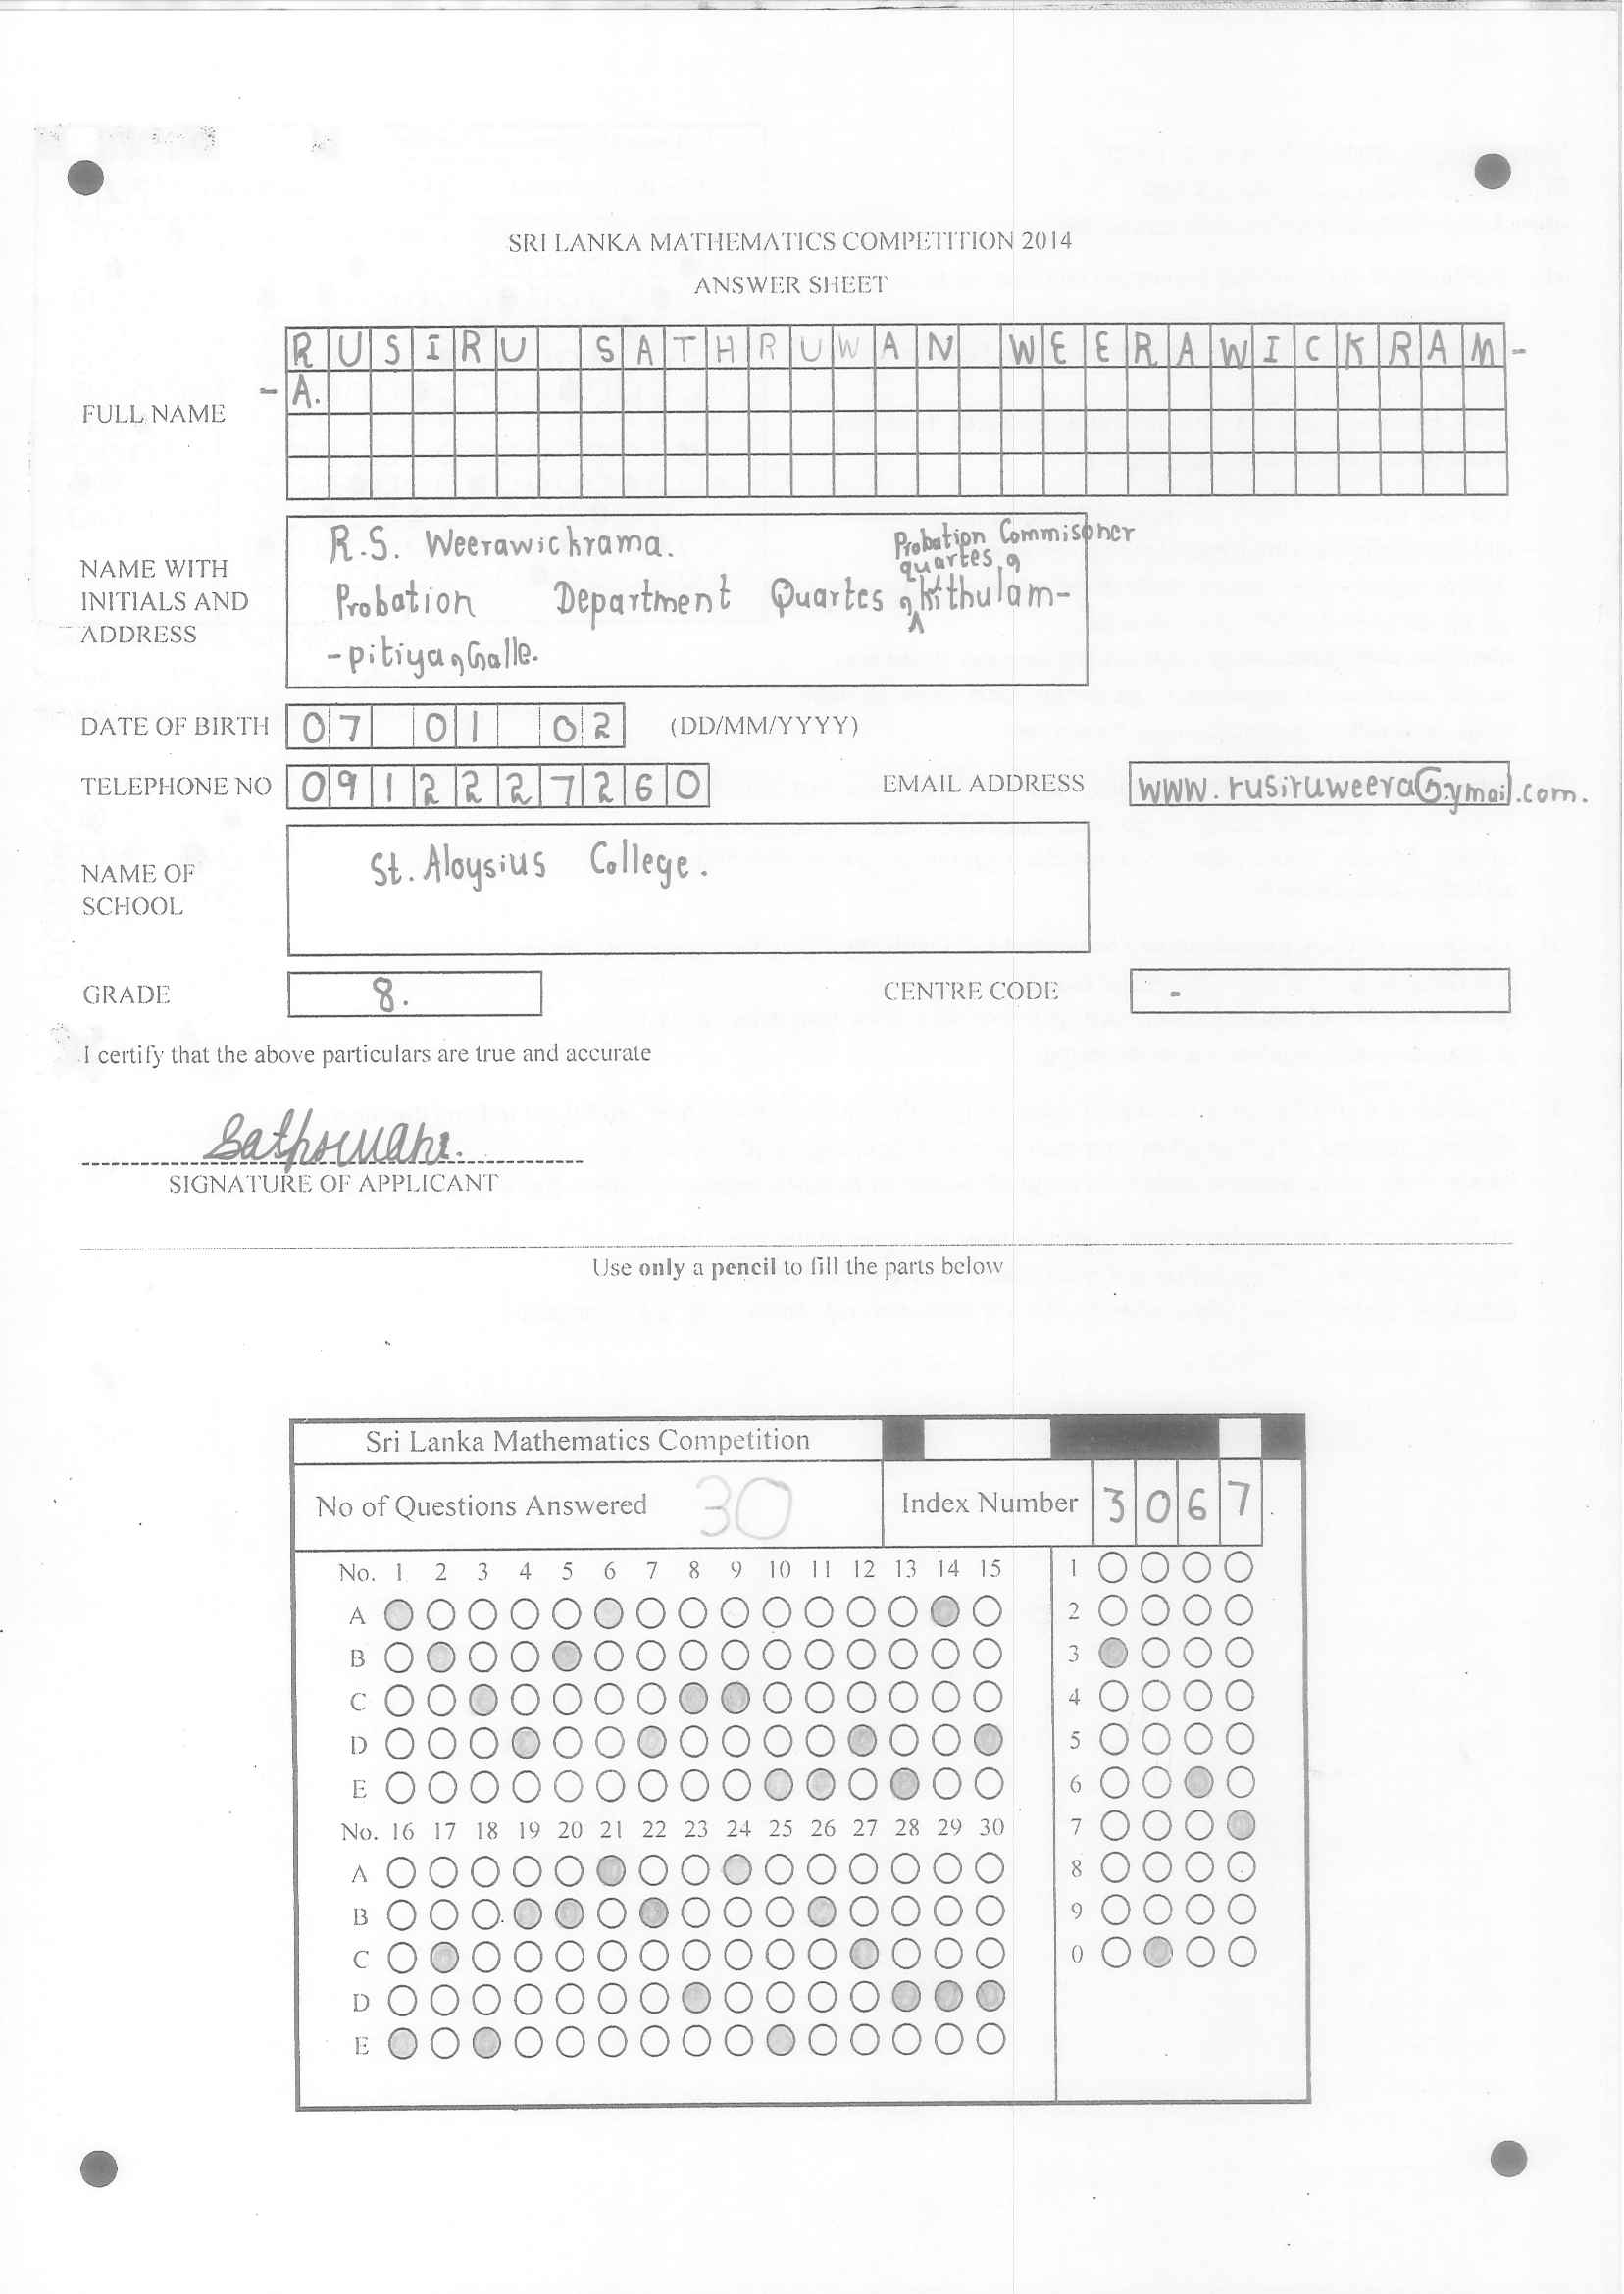 SRI LANKA MATHEMATICS COMPETITION 2014
ANSWER SHEET
RUSIRU SATHRUWAN WEERAWICKRAM-
-A.
FULL NAME
NAME WITH INITIALS AND ADDRESS
R.S. Weerawickrama.
Probation Commisoner
quartes,
Probation Department Quartes, Kithulam-
-pitiya, Galle.
DATE OF BIRTH 07 01 02 (DD/MM/YYYY)
TELEPHONE NO 0912227260 EMAIL ADDRESS www.rusiruweera@ymail.com.
NAME OF SCHOOL St. Aloysius College.
GRADE 8. CENTRE CODE -
I certify that the above particulars are true and accurate
SIGNATURE OF APPLICANT
Use only a pencil to fill the parts below
Sri Lanka Mathematics Competition
No of Questions Answered 30 Index Number 3 0 6 7
No. 1 2 3 4 5 6 7 8 9 10 11 12 13 14 15 1
A 2
B 3
C 4
D 5
E 6
No. 16 17 18 19 20 21 22 23 24 25 26 27 28 29 30 7
A 8
B 9
C 0
D
E